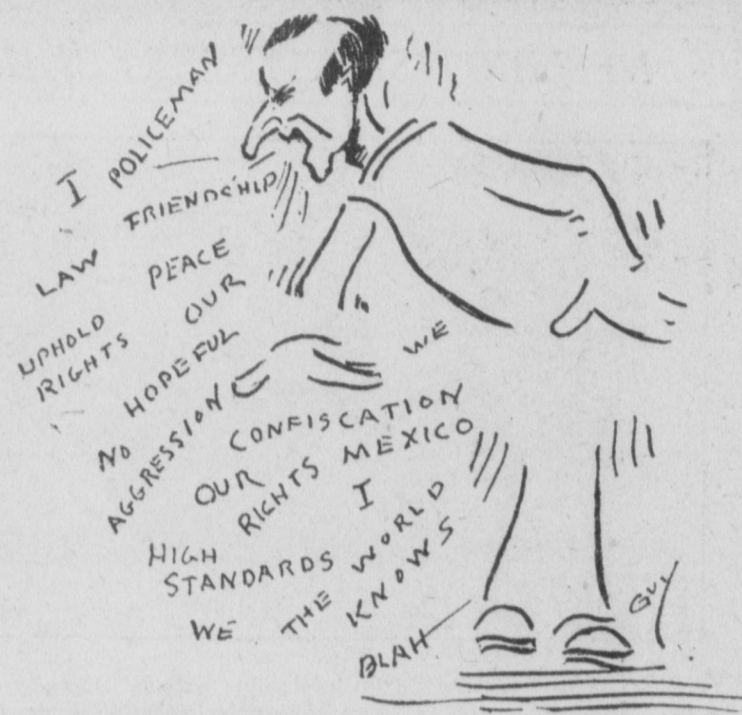 I POLICEMAN
LAW FRIENDSHIP
PEACE
UPHOLD
RIGHTS OUR
HOPEFUL
WE
NO
AGGRESSION
CONFISCATION
OUR RIGHTS MEXICO
I
HIGH
STANDARDS
WE THE WORLD
KNOWS
BLAH